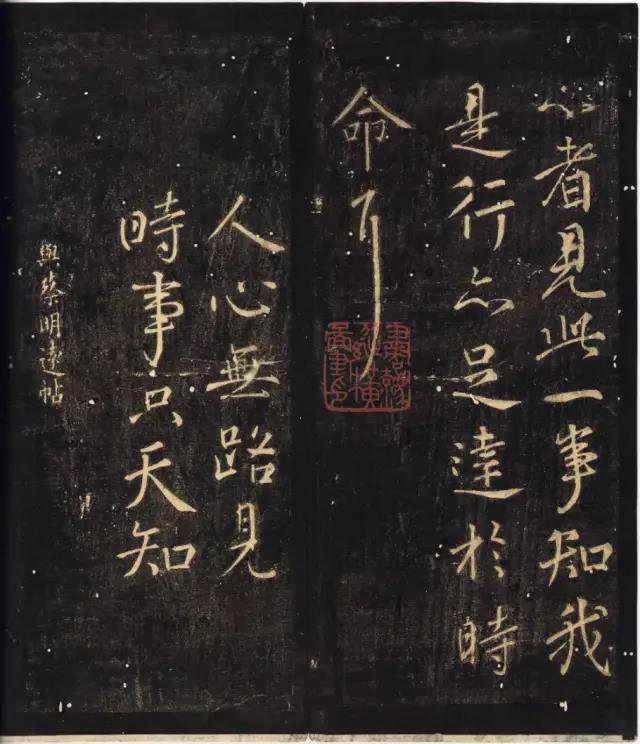 心者見此一事知我
是行亦足達於時
命耳
人心無路見
時事只天知
與蔡明遠帖